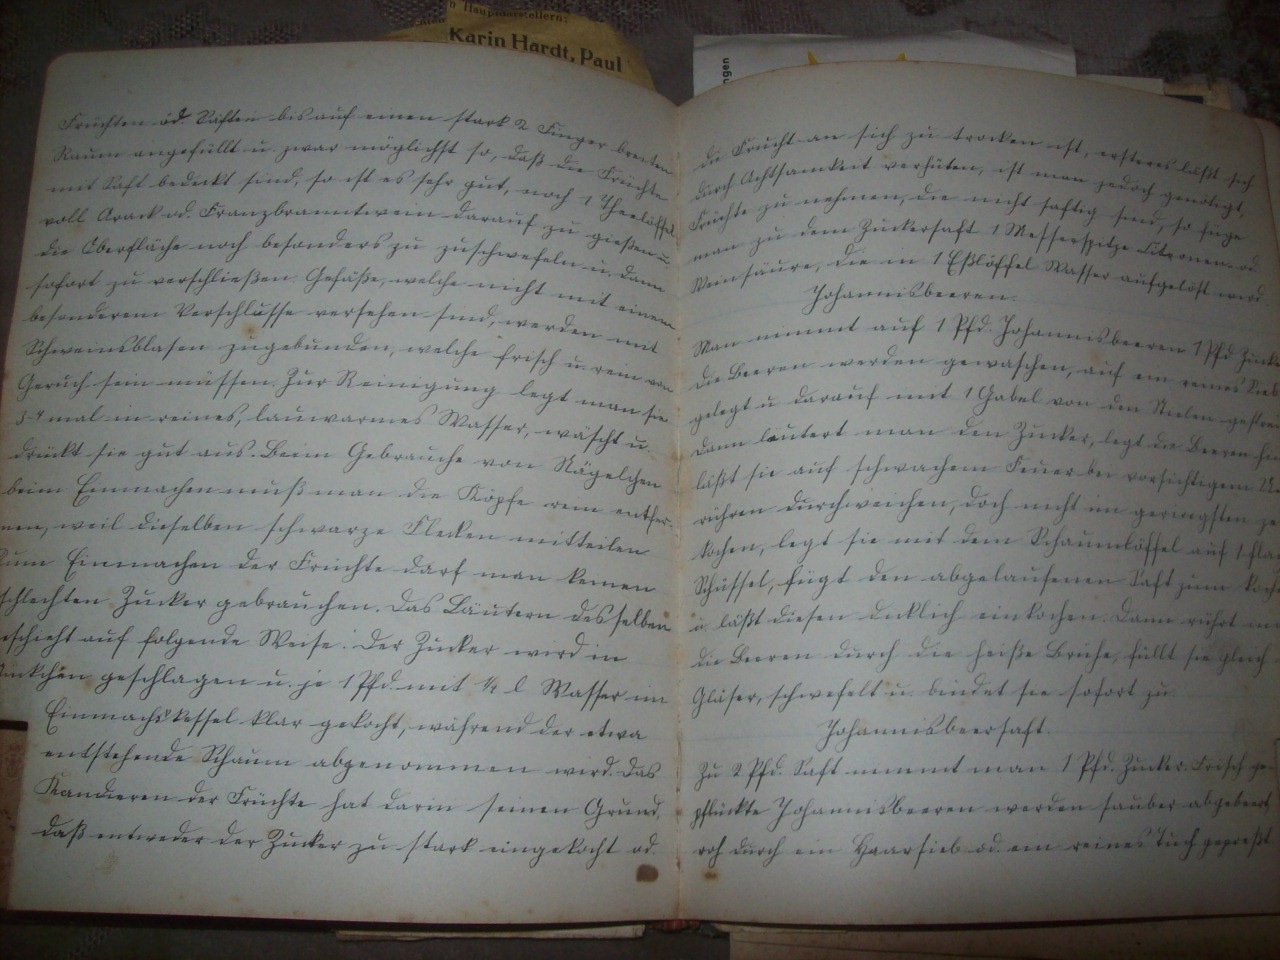 n Hauptdarstellern:
Karin Hardt, Paul
ngen
Früchten od. Säften bis auf einen stark 2 Finger breiten
Raum angefüllt u. zwar möglichst so, daß die Früchte
mit Saft bedeckt sind, so ist es sehr gut, noch 1 Theelöffel
voll Arack od. Franzbranntwein darauf zu gießen u.
die Oberfläche noch besonders zu zuschwefeln u. dann
sofort zu verschließen. Gefäße, welche nicht mit einem
besonderem Verschlusse versehen sind, werden mit
Schweinsblasen zugebunden, welche frisch u. rein von
Geruch sein müssen. Zur Reinigung legt man sie
3-4 mal in reines, lauwarmes Wasser, wäscht u.
drückt sie gut aus. Beim Gebrauche von Nägelchen
beim Einmachen muß man die Köpfe rein entfer-
nen, weil dieselben schwarze Flecken mitteilen
Zum Einmachen der Früchte darf man keinen
schlechten Zucker gebrauchen. Das Läutern desselben
eschieht auf folgende Weise: Der Zucker wird in
ückchen geschlagen u. je 1 Pfd. mit ¼ l Wasser im
Einmachskessel klar gekocht, während der etwa
entstehende Schaum abgenommen wird. Das
Kandieren der Früchte hat darin seinen Grund,
daß entweder der Zucker zu stark eingekocht od.
die Frucht an sich zu trocken ist, ersteres läßt sich
durch Achtsamkeit verhüten, ist man jedoch genötigt,
Früchte zu nehmen, die nicht saftig sind, so füge
man zu dem Zuckersaft 1 Messerspitze Citronen- od.
Weinsäure, die in 1 Eßlöffel Wasser aufgelöst wird.
Johannisbeeren.
Man nimmt auf 1 Pfd. Johannisbeeren 1 Pfd Zucke
die Beeren werden gewaschen, auf ein reines Sieb
gelegt u. darauf mit 1 Gabel von den Stielen gestrei
Dann läutert man den Zucker, legt die Beeren hin
läßt sie auf schwachem Feuer bei vorsichtigem Um
rühren durchweichen, doch nicht im geringsten ze
kochen, legt sie mit dem Schaumlöffel auf 1 flac
Schüssel, fügt den abgelaufenen Saft zum Koch
u. läßt diesen dicklich einkochen. Dann rührt m
die Beeren durch die heiße Brühe, füllt sie gleich
Gläser, schwefelt u. bindet sie sofort zu.
Johannisbeersaft.
Zu 2 Pfd. Saft nimmt man 1 Pfd. Zucker. Frisch ge-
pflückte Johannisbeeren werden sauber abgebeert,
roh durch ein Haarsieb od. ein reines Tuch gepreßt